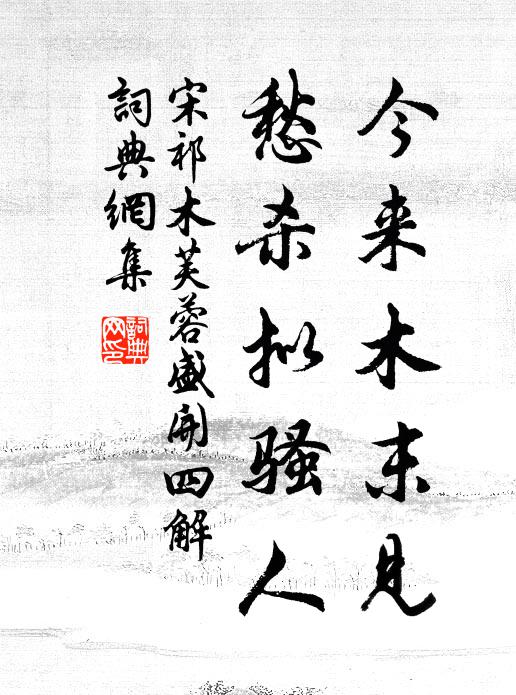 今来木末見
愁杀拟骚人
宋祁木芙蓉盛開四解
詞典網集
詞典網印